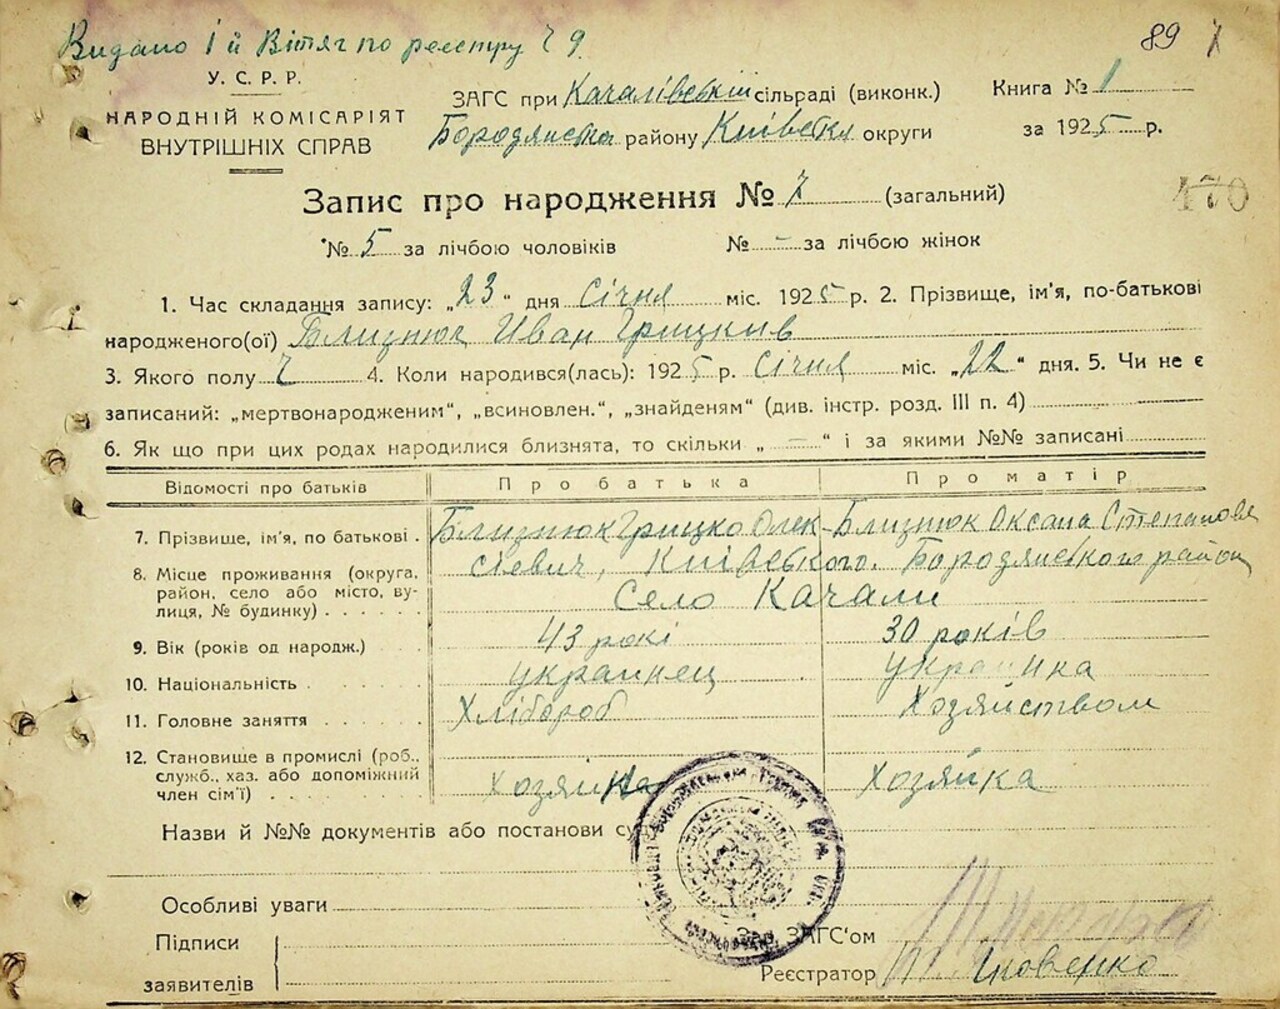 Видано І й Витяг по реєстру Ч 9
89
У. С. Р. Р.
НАРОДНІЙ КОМІСАРІЯТ
ВНУТРІШНІХ СПРАВ
ЗАГС при Качалівській сільраді (виконк.)
Бородянськ району Київськ округи
Книга № 1
за 1925 р.
Запис про народження № 7 (загальний)
470
№ 5 за лічбою чоловіків № - за лічбою жінок
1. Час складання запису: „23“ дня Січня міс. 1925 р. 2. Прізвище, ім'я, по-батькові
народженого(ої) Близнюк Иван Грицків
3. Якого полу Ч 4. Коли народився(лась): 1925 р. Січня міс. „22“ дня. 5. Чи не є
записаний: „мертвонародженим“, „всиновлен.“, „знайденям“ (див. інстр. розд. III п. 4)
6. Як що при цих родах народилися близнята, то скільки „ — “ і за якими №№ записані
Відомості про батьків Про батька Про матір
7. Прізвище, ім'я, по батькові . Близнюк Грицко Олек- Близнюк Оксана Степанова
сієвич, Київського. Бородянського район
8. Місце проживання (округа, район, село або місто, вулиця, № будинку) Село Качали
9. Вік (років од народж.) 43 рокі 30 років
10. Національність украинец украинка
11. Головне заняття Хлібороб Хозяйством
12. Становище в промислі (роб., служб., хаз. або допоміжний член сім'ї) хозяин Хозяйка
Назви й №№ документів або постанови суду
Особливі уваги
Підписи
заявителів
Зав. ЗАГС'ом
Реєстратор